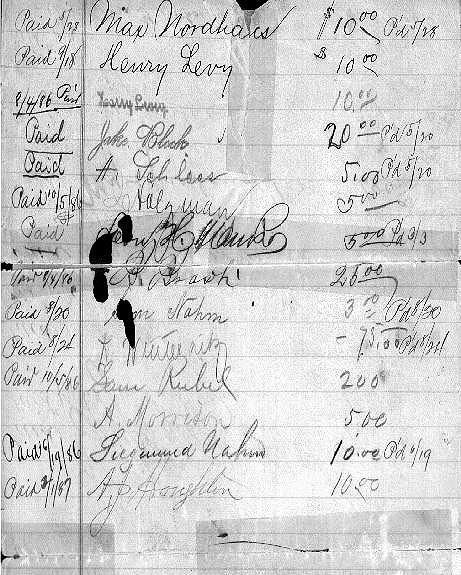 Paid 5/28 Max Nordhaus $10.00 P'd 5/28
Paid 9/18 Henry Levy $10.00
8/4/86 Paid Harry Levy 10.00
Paid Jake Block 20.00 P'd 5/20
Paid A. Schless 5.00 P'd 5/20
Paid 10/5/86 5.00
Paid 5.00 P'd 9/3
Paid 25.00
Paid 8/20 Nahm 3.00 P'd 8/20
Paid 8/24 P'd 8/24
Paid 10/5/86 Sam Rubel 2.00
A. Morrison 5.00
Paid 6/19/86 Siegmund Nahm 10.00 P'd 6/19
Paid 2/1/87 A. P. Houghton 10.00